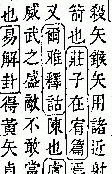 殺矢鍭矢用諸近射
箭也莊子在宥篇
又爾雅釋詁陳也
威武之盛敵不敢當
也易解卦得黃矢貞